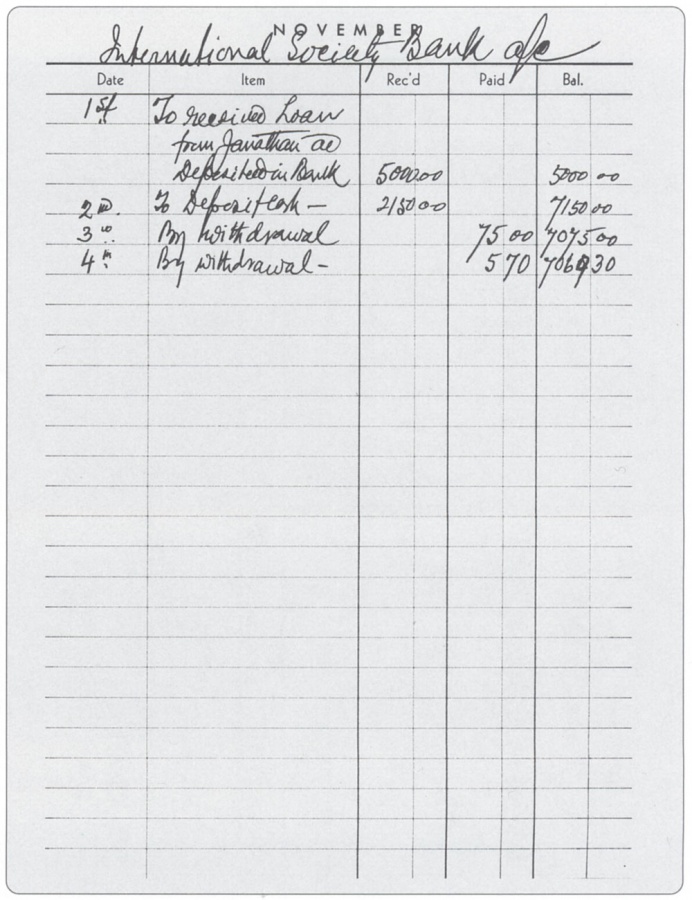 NOVEMBER
International Society Bank a/c
Date Item Rec'd Paid Bal.
1st To received Loan
from Janathan ac
Deposited in Bank 5000.00 5000 00
2nd. To Deposit cash — 2150 00 7150 00
3rd By withdrawal 75 00 7075 00
4th By withdrawal - 5 70 7069 30